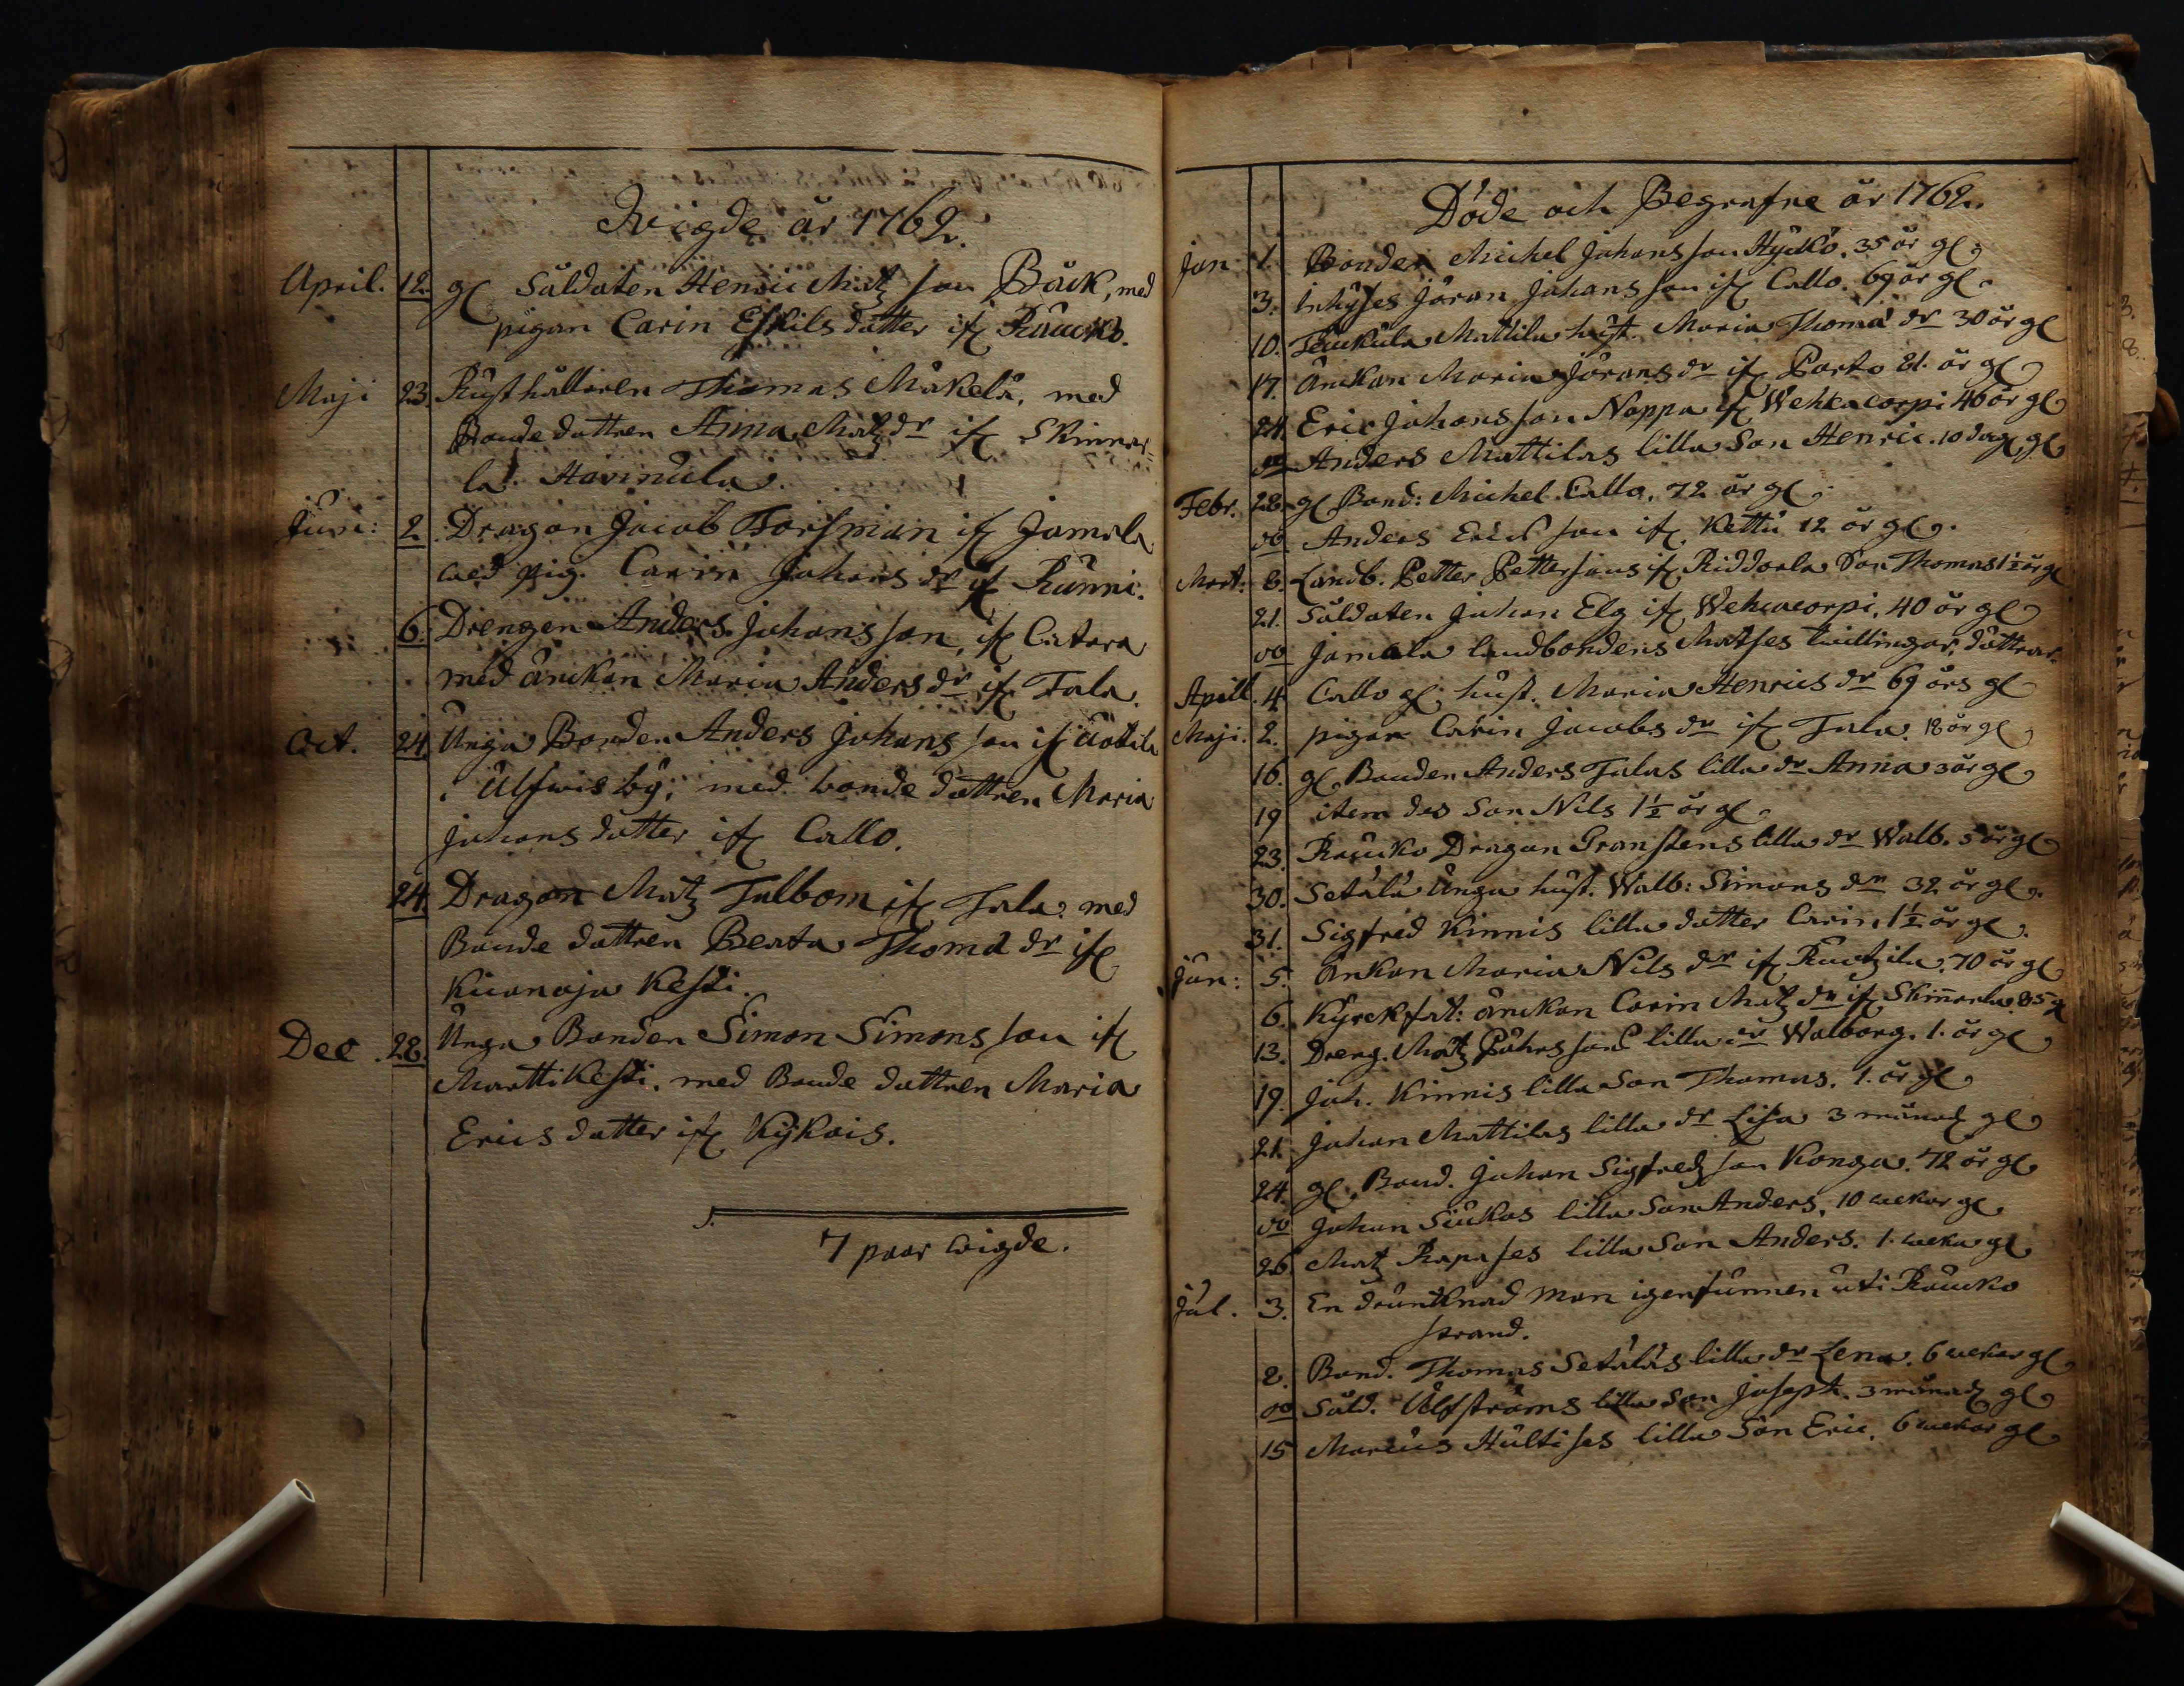 Wigde år 1762.
April. 12. gl Såldaten Henric Matz son Bäck, med
pigan Carin Eskils dåtter if Raucko.
Maji 23. Rusthållaren Thomas Mäkelä, med
Bonde dottren Anna Matz dr if Skinnar=
la Havinula.
Juni: 2. Dragon Jacob Forsman if Jamala
med pig. Carin Johans dr if Runni.
6. Drengen Anders Johans son, if Catara
med änckan Maria Anders dr if Tala.
Oct. 24. Unga Bonden Anders Johans son if Uotila
Ulfwis by, med bonde dottren Maria
Johans dotter if Callo.
24. Dragon Matz Talbom if Tala med
Bonde dottren Beata Thoma dr if
Kiianaja Kesti.
Dec. 28. Unga Bonden Simon Simons son if
Martti Kesti, med Bonde dottren Maria
Erics dotter if Kykois.
S. 7 paar wigde.
Döde och Begrafne år 1762.
Jan 1. Bonden Michel Johans son Hyckö. 35 år gl
3. Inhyses Jöran Johans son if Callo. 69 år gl
10. Mattila hust. Maria Thoma dr 30 år gl
17. Änckan Maria Jörans dr if Parko 81 år gl
24. Eric Johans son Noppa if Wehkacorpi 46 år gl
do Anders Mattilas lilla Son Henric. 10 dag. gl
Febr. 28. gl Bond: Michel Callo, 72 år gl
do Anders Erics son if Kettu 12 år gl
Mart. 8. Landb. Petter Pettersons if Riddarla Son Thomas 1½ år gl
21. Såldaten Johan Elg if Wehcacorpi. 40 år gl
do Jamala landbondens Matses twillingar, döttrar.
Aprill. 4. Callo gl hust. Maria Henrics dr 69 års gl
Maji. 2. pigan Carin Jacobs dr if Tala. 18 år gl
16. gl Bonden Anders Talas lilla dr Anna 3 år gl
19 item des Son Nils 1½ år gl
23. Raucko Dragon Gransténs lilla dr Walb. 5 år gl
30. Setälä Unga hust. Walb: Simons dr 32 år gl
31. Sigfred Kinnis lilla dotter Carin 1½ år gl.
Jun: 5. Änkan Maria Nils dr if Ruotzila. 70 år gl
6. Kyrckfat: änckan Carin Matz dr if Skinnarla 85 gl
13. Dreng. Matz Påhrs sons lilla dr Walborg. 1. år gl
19. Joh. Kinnis lilla Son Thomas. 1. år gl
21. Johan Mattilas lilla dr Lisa 3 månad gl
24. gl. Bond. Johan Sigfredz son Konga. 72 år gl
do Johan Siukas lilla Son Anders. 10 wekor gl
26. Matz Rapases lilla Son Anders. 1. weka gl
Jul. 3. En drunknad man igenfunnen uti Raucko
strand.
8. Bond. Thomas Setäläs lilla dr Lena. 6 wekor gl
do Såld. Ulfströms lilla Son Joseph. 3 månad gl
15 Marcus Hultises lilla Son Eric. 6 wekor gl